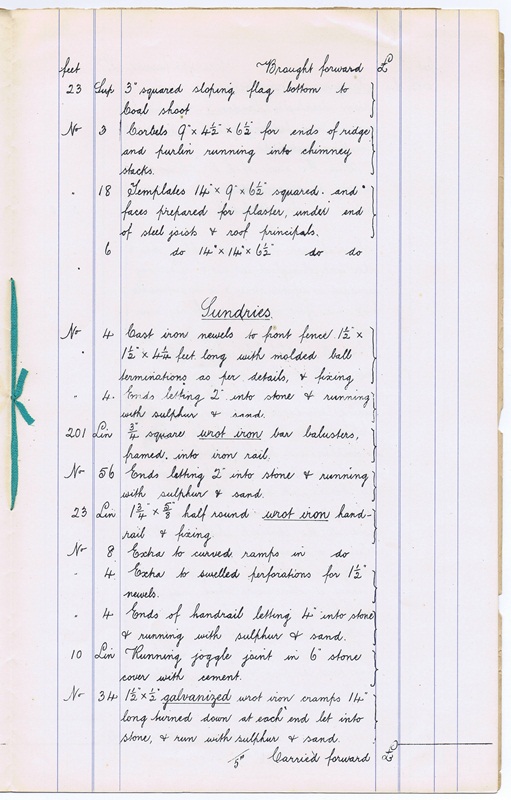 feet Brought forward £
23 Sup 3" squared sloping flag bottom to
Coal shoot
No 3 Corbels 9" × 4½" × 6½" for ends of ridge
and purlin running into chimney
stacks.
" 18 Templates 14" × 9" × 6½" squared. and
faces prepared for plaster, under end
of steel joists & roof principals.
" 6 do 14" × 14" × 6½" do do
Sundries.
No 4 Cast iron newels to front fence 1½" ×
1½" × 4¼ feet long with molded ball
terminations as per details, & fixing
" 4. Ends letting 2" into stone & running
with sulphur & sand.
201 Lin ¾" square wrot iron bar balusters,
framed into iron rail.
No 56 Ends letting 2" into stone & running
with sulphur & sand.
23 Lin 1¾" × ⅝" half round wrot iron hand-
rail & fixing
No 8 Extra to curved ramps in do
" 4 Extra to swelled perforations for 1½"
newels.
" 4 Ends of handrail letting 4" into stone
& running with sulphur & sand.
10 Lin Running joggle joint in 6" stone
cover with cement.
No 34 1½" × ½" galvanized wrot iron cramps 14"
long turned down at each end let into
stone, & run with sulphur & sand.
/5" Carried forward £